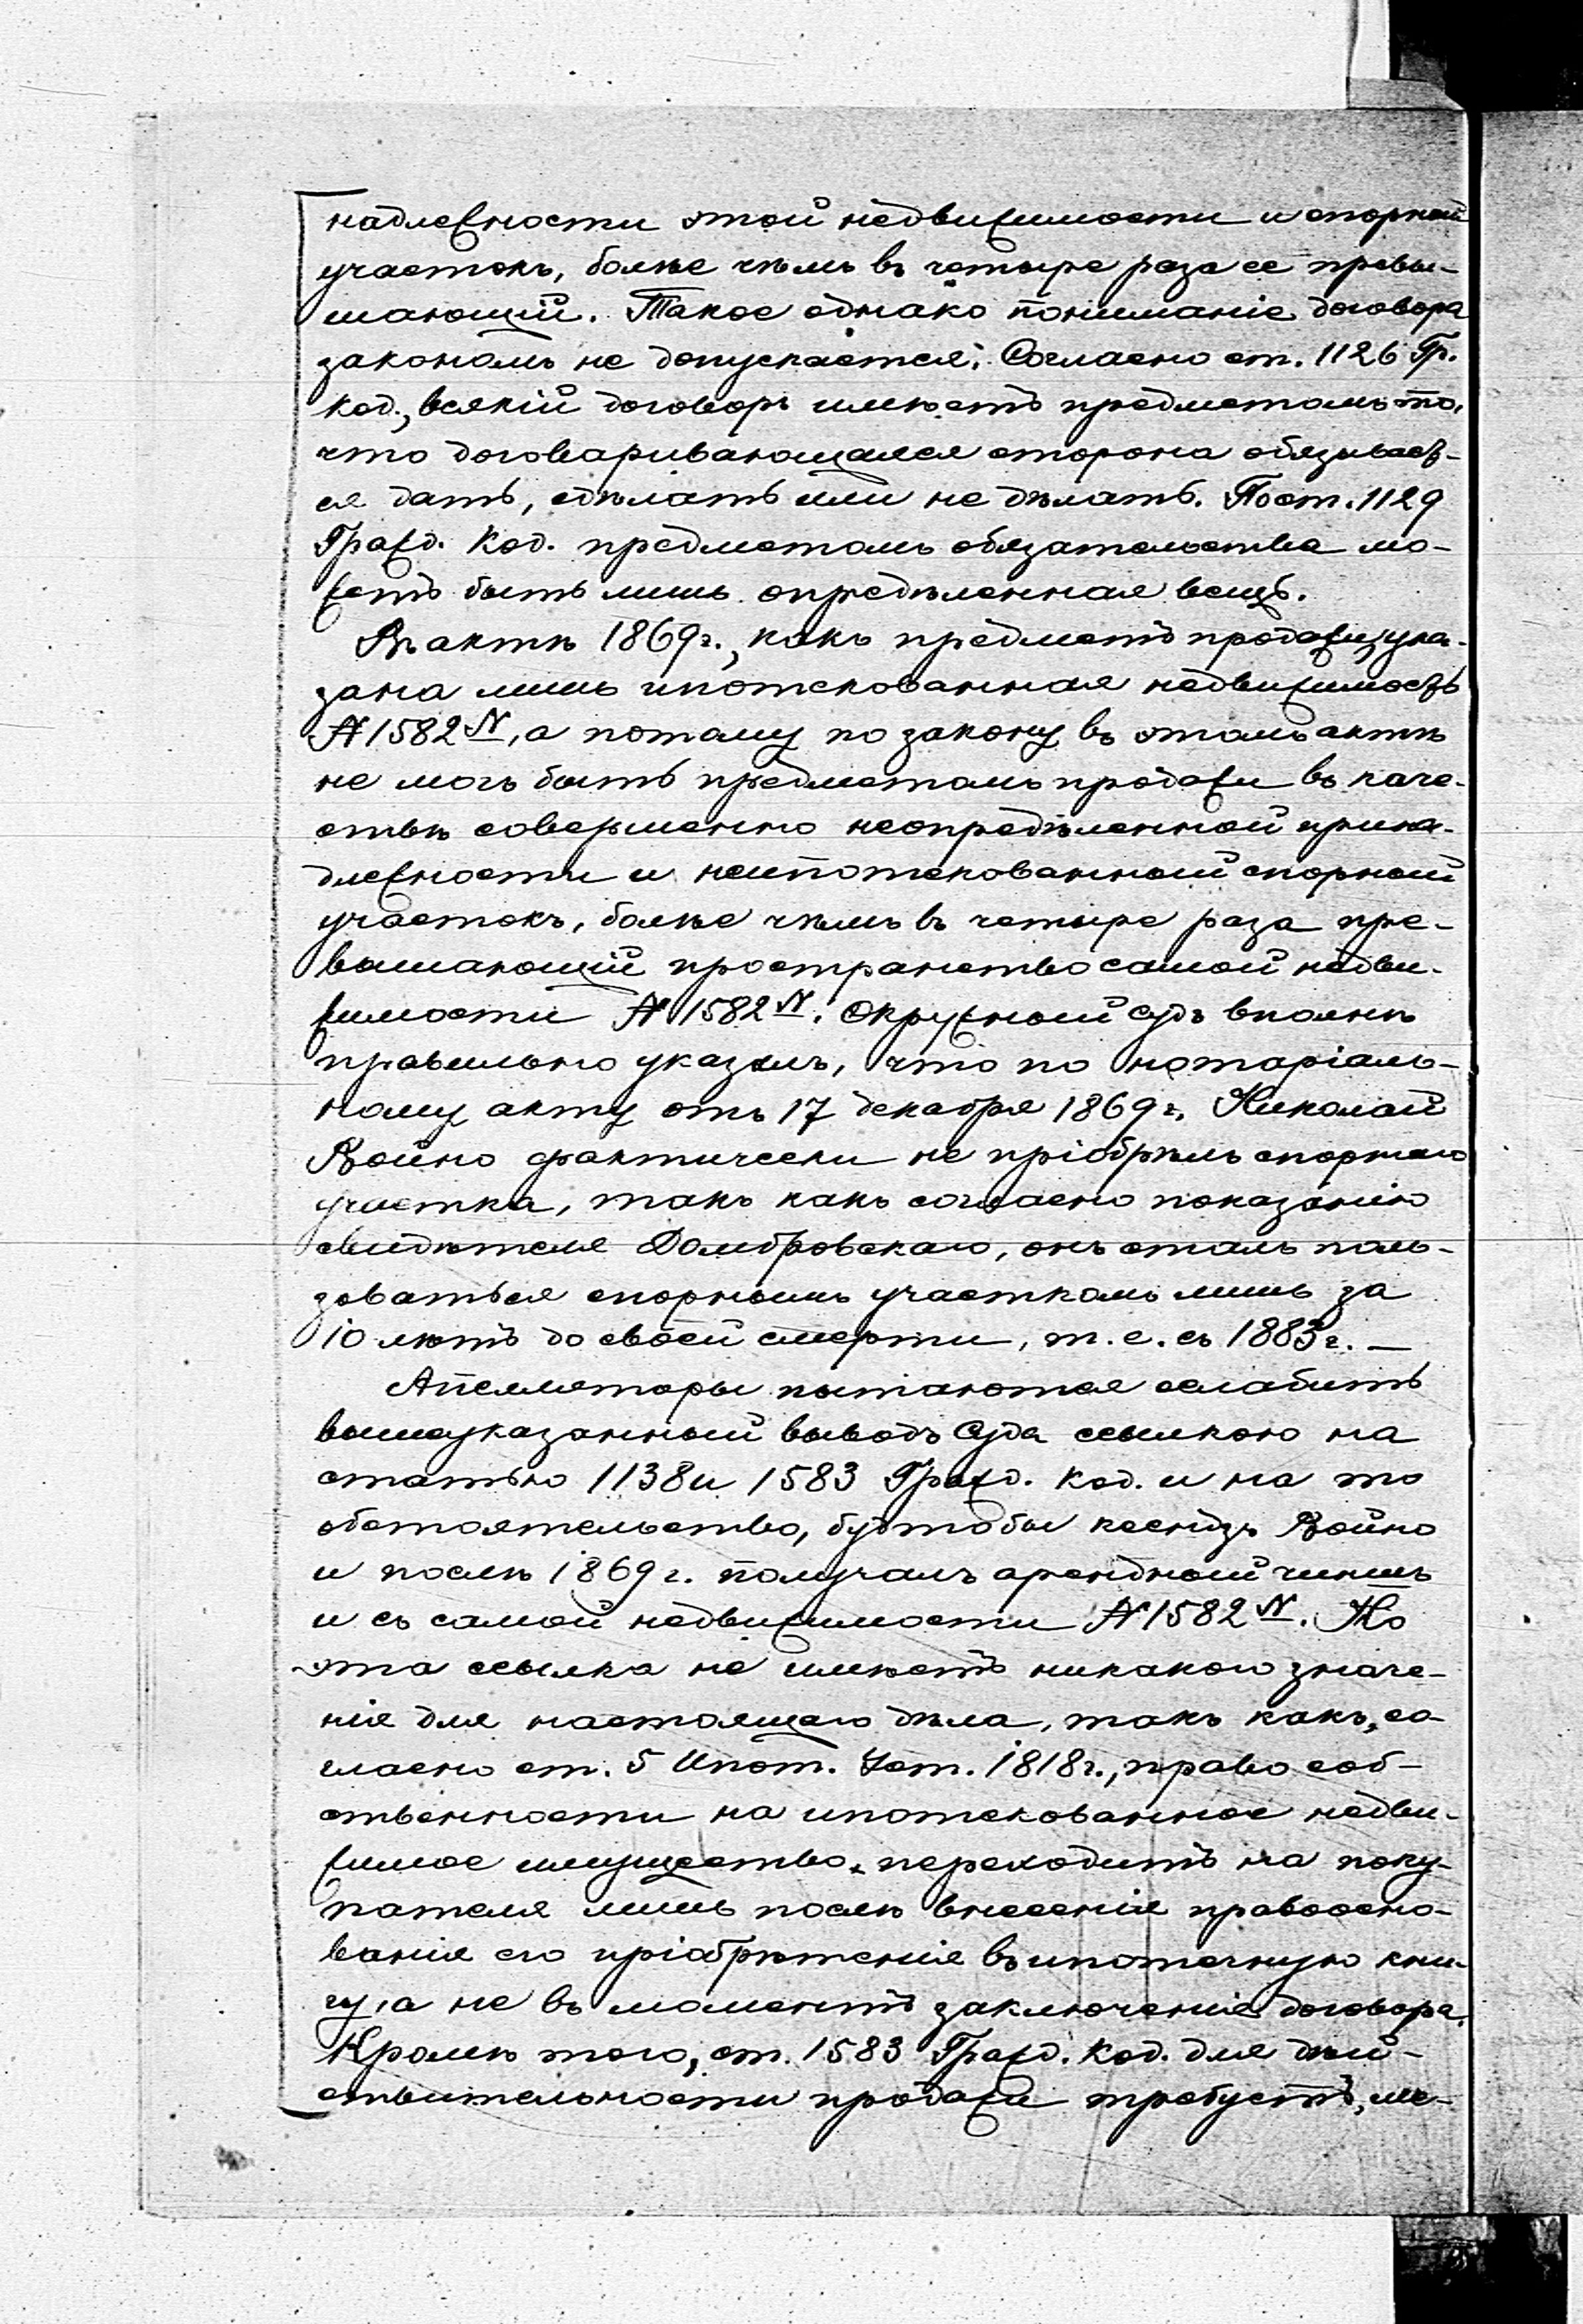 надлежности этой недвижимости и спорный
участокъ, болѣе чѣмъ въ четыре раза ее превы-
шающій. Такое однако пониманіе договора
закономъ не допускается. Согласно ст. 1126 Гр.
Код., всякій договоръ имѣетъ предметомъ то,
что договаривающаяся сторона обязывает-
ся дать, сдѣлать или не дѣлать. По ст. 1129
Гражд. Код. предметомъ обязательства мо-
жетъ быть лишь опредѣленная вещь.
Въ актѣ 1869 г., какъ предметъ продажи, ука-
зана лишь ипотекованная недвижимость
№ 1582 N, а потому по закону въ этомъ актѣ
не могъ быть предметомъ продажи въ каче-
ствѣ совершенно неопредѣленной прина-
длежности и неипотекованный спорный
участокъ, болѣе чѣмъ въ четыре раза пре-
вышающій пространство самой недви-
жимости № 1582 N. Окружный Судъ вполнѣ
правильно указалъ, что по нотаріаль-
ному акту отъ 17 декабря 1869 г. Николай
Война фактически не пріобрѣлъ спорнаго
участка, такъ какъ согласно показанію
свидѣтеля Домбровскаго, онъ сталъ поль-
зоваться спорнымъ участкомъ лишь за
10 лѣтъ до своей смерти, т. е. съ 1883 г. –
Апелляторы пытаются ослабить
вышеуказанный выводъ Суда ссылкою на
статью 1138 и 1583 Гражд. Код. и на то
обстоятельство, будто бы ксендзъ Война
и послѣ 1869 г. получалъ арендный чиншъ
и съ самой недвижимости № 1582 N. Но
эта ссылка не имѣетъ никакого значе-
нія для настоящаго дѣла, такъ какъ, со-
гласно ст. 5 Ипот. Уст. 1818 г., право соб-
ственности на ипотекованное недви-
жимое имущество переходитъ на поку-
пателя лишь послѣ внесенія правоосно-
ванія его пріобрѣтенія въ ипотечную кни-
гу, а не въ моментъ заключенія договора.
Кромѣ того, ст. 1583 Гражд. Код. для дѣй-
ствительности продажи требуетъ, ме-